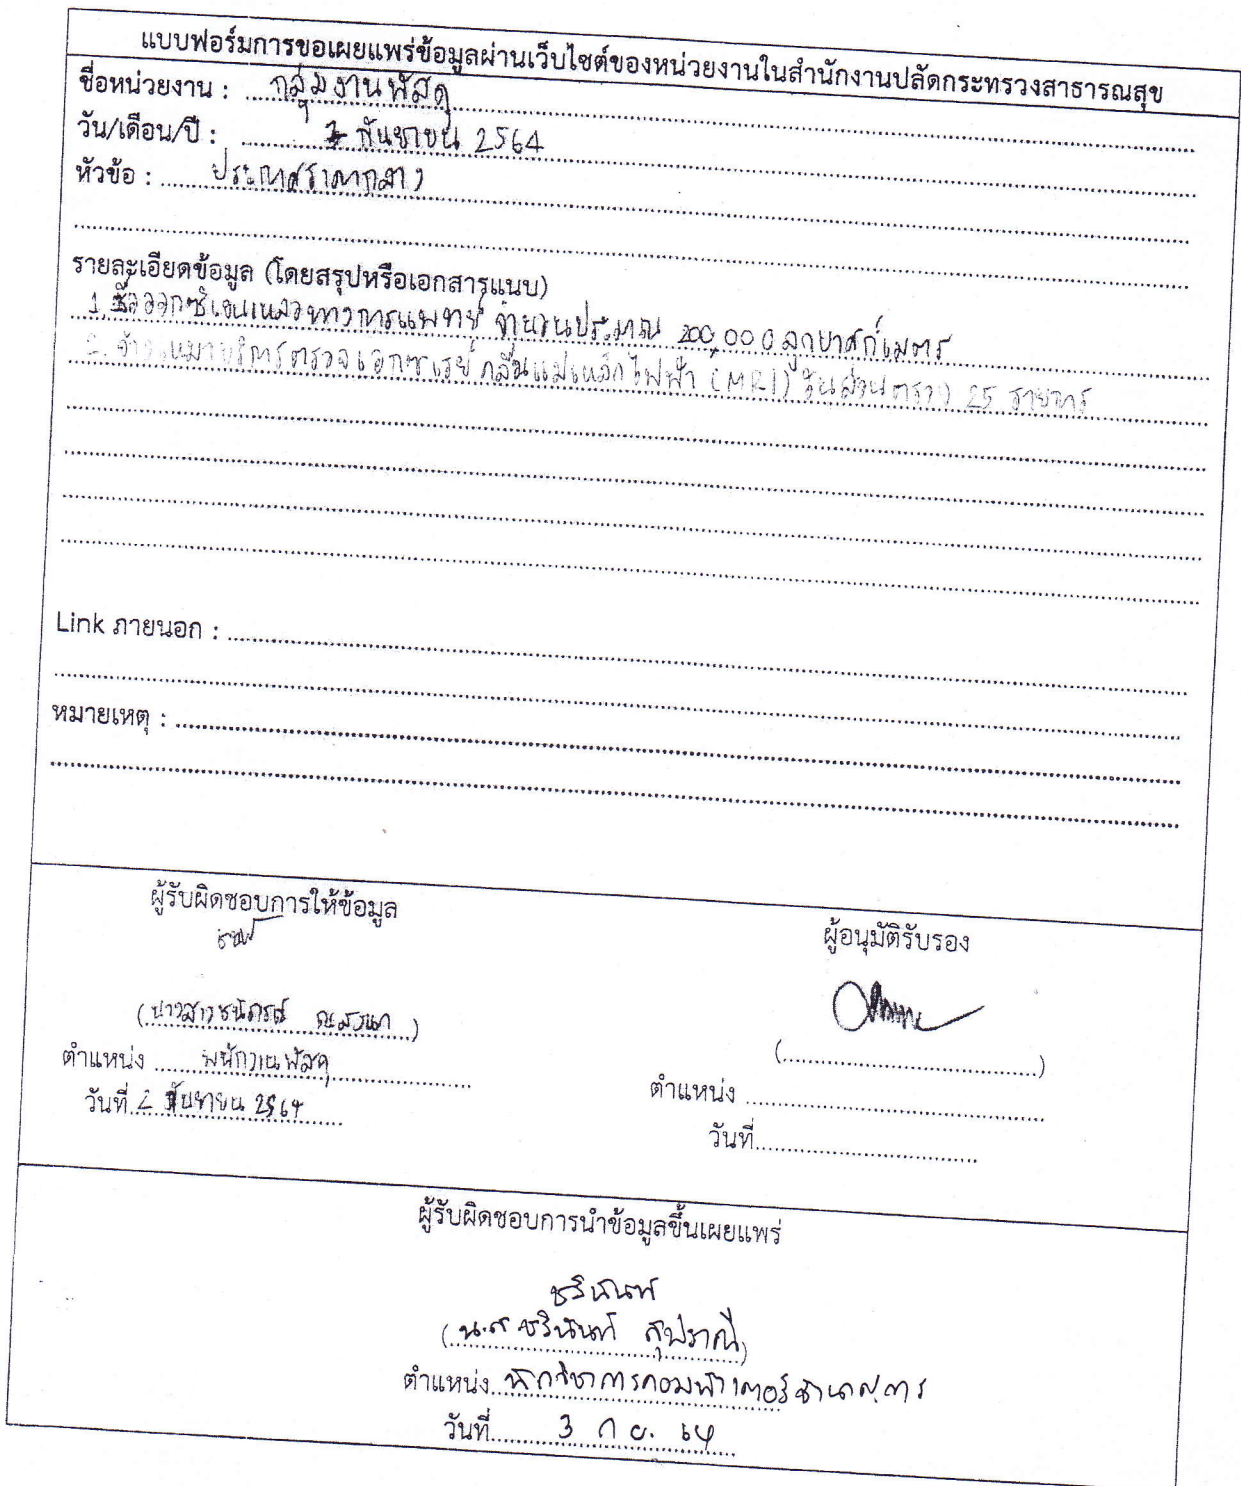 แบบฟอร์มการขอเผยแพร่ข้อมูลผ่านเว็บไซต์ของหน่วยงานในสำนักงานปลัดกระทรวงสาธารณสุข
ชื่อหน่วยงาน : กลุ่มงานพัสดุ
วัน/เดือน/ปี : กันยายน 2564
หัวข้อ : ประกาศราคากลาง
รายละเอียดข้อมูล (โดยสรุปหรือเอกสารแนบ)
1. ซื้อออกซิเจนเหลวทางการแพทย์ จำนวนประมาณ 200,000 ลูกบาศก์เมตร
2. จ้างเหมาบริการตรวจเอกซเรย์ คลื่นแม่เหล็กไฟฟ้า (MRI) ส่วนตรวจ 25 รายการ
Link ภายนอก :
หมายเหตุ :
ผู้รับผิดชอบการให้ข้อมูล
ผู้อนุมัติรับรอง
(นางสาว )
(
)
ตำแหน่ง พนักงานพัสดุ
ตำแหน่ง
วันที่ 2 กันยายน 2564
วันที่
ผู้รับผิดชอบการนำข้อมูลขึ้นเผยแพร่
ชรินันท์
(น.ส ชรินันท์ สุปราณี)
ตำแหน่ง นักวิชาการคอมพิวเตอร์ชำนาญการ
วันที่ 3 ก.ย. 64